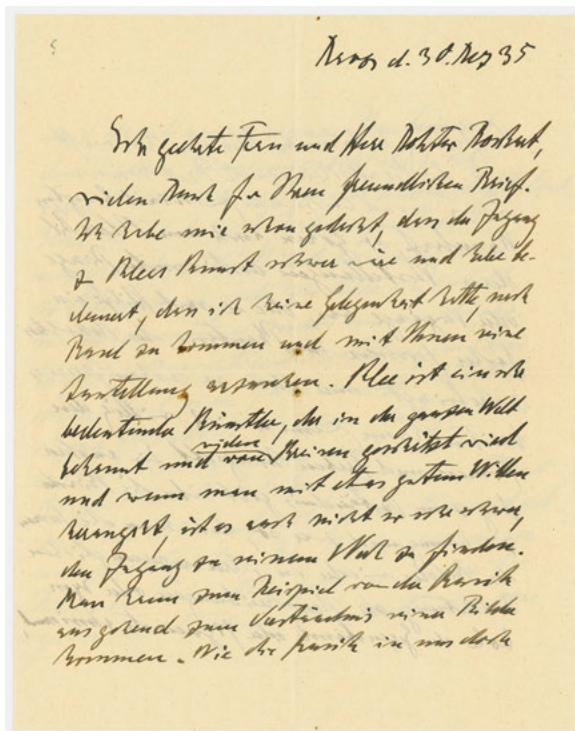 Davos d. 30. Dez 35
Sehr geehrte Frau und Herr Doktor Bosshart,
vielen Dank für Ihren freundlichen Brief.
Ich habe mir schon gedacht, dass der Zugang
z Klees Kunst schwer sei und habe be-
dauert, dass ich keine Gelegenheit hatte, nach
Basel zu kommen und mit Ihnen seine
Ausstellung anzusehen. Klee ist ein sehr
bedeutender Künstler, der in der ganzen Welt
bekannt und von vielen Kreisen geschätzt wird
und wenn man mit etwas gutem Willen
herangeht, ist es auch nicht so sehr schwer,
den Zugang zu seinem Werk zu finden.
Man kann zum Beispiel von der Musik
ausgehend zum Verständnis seiner Bilder
kommen. Wie die Musik in uns doch